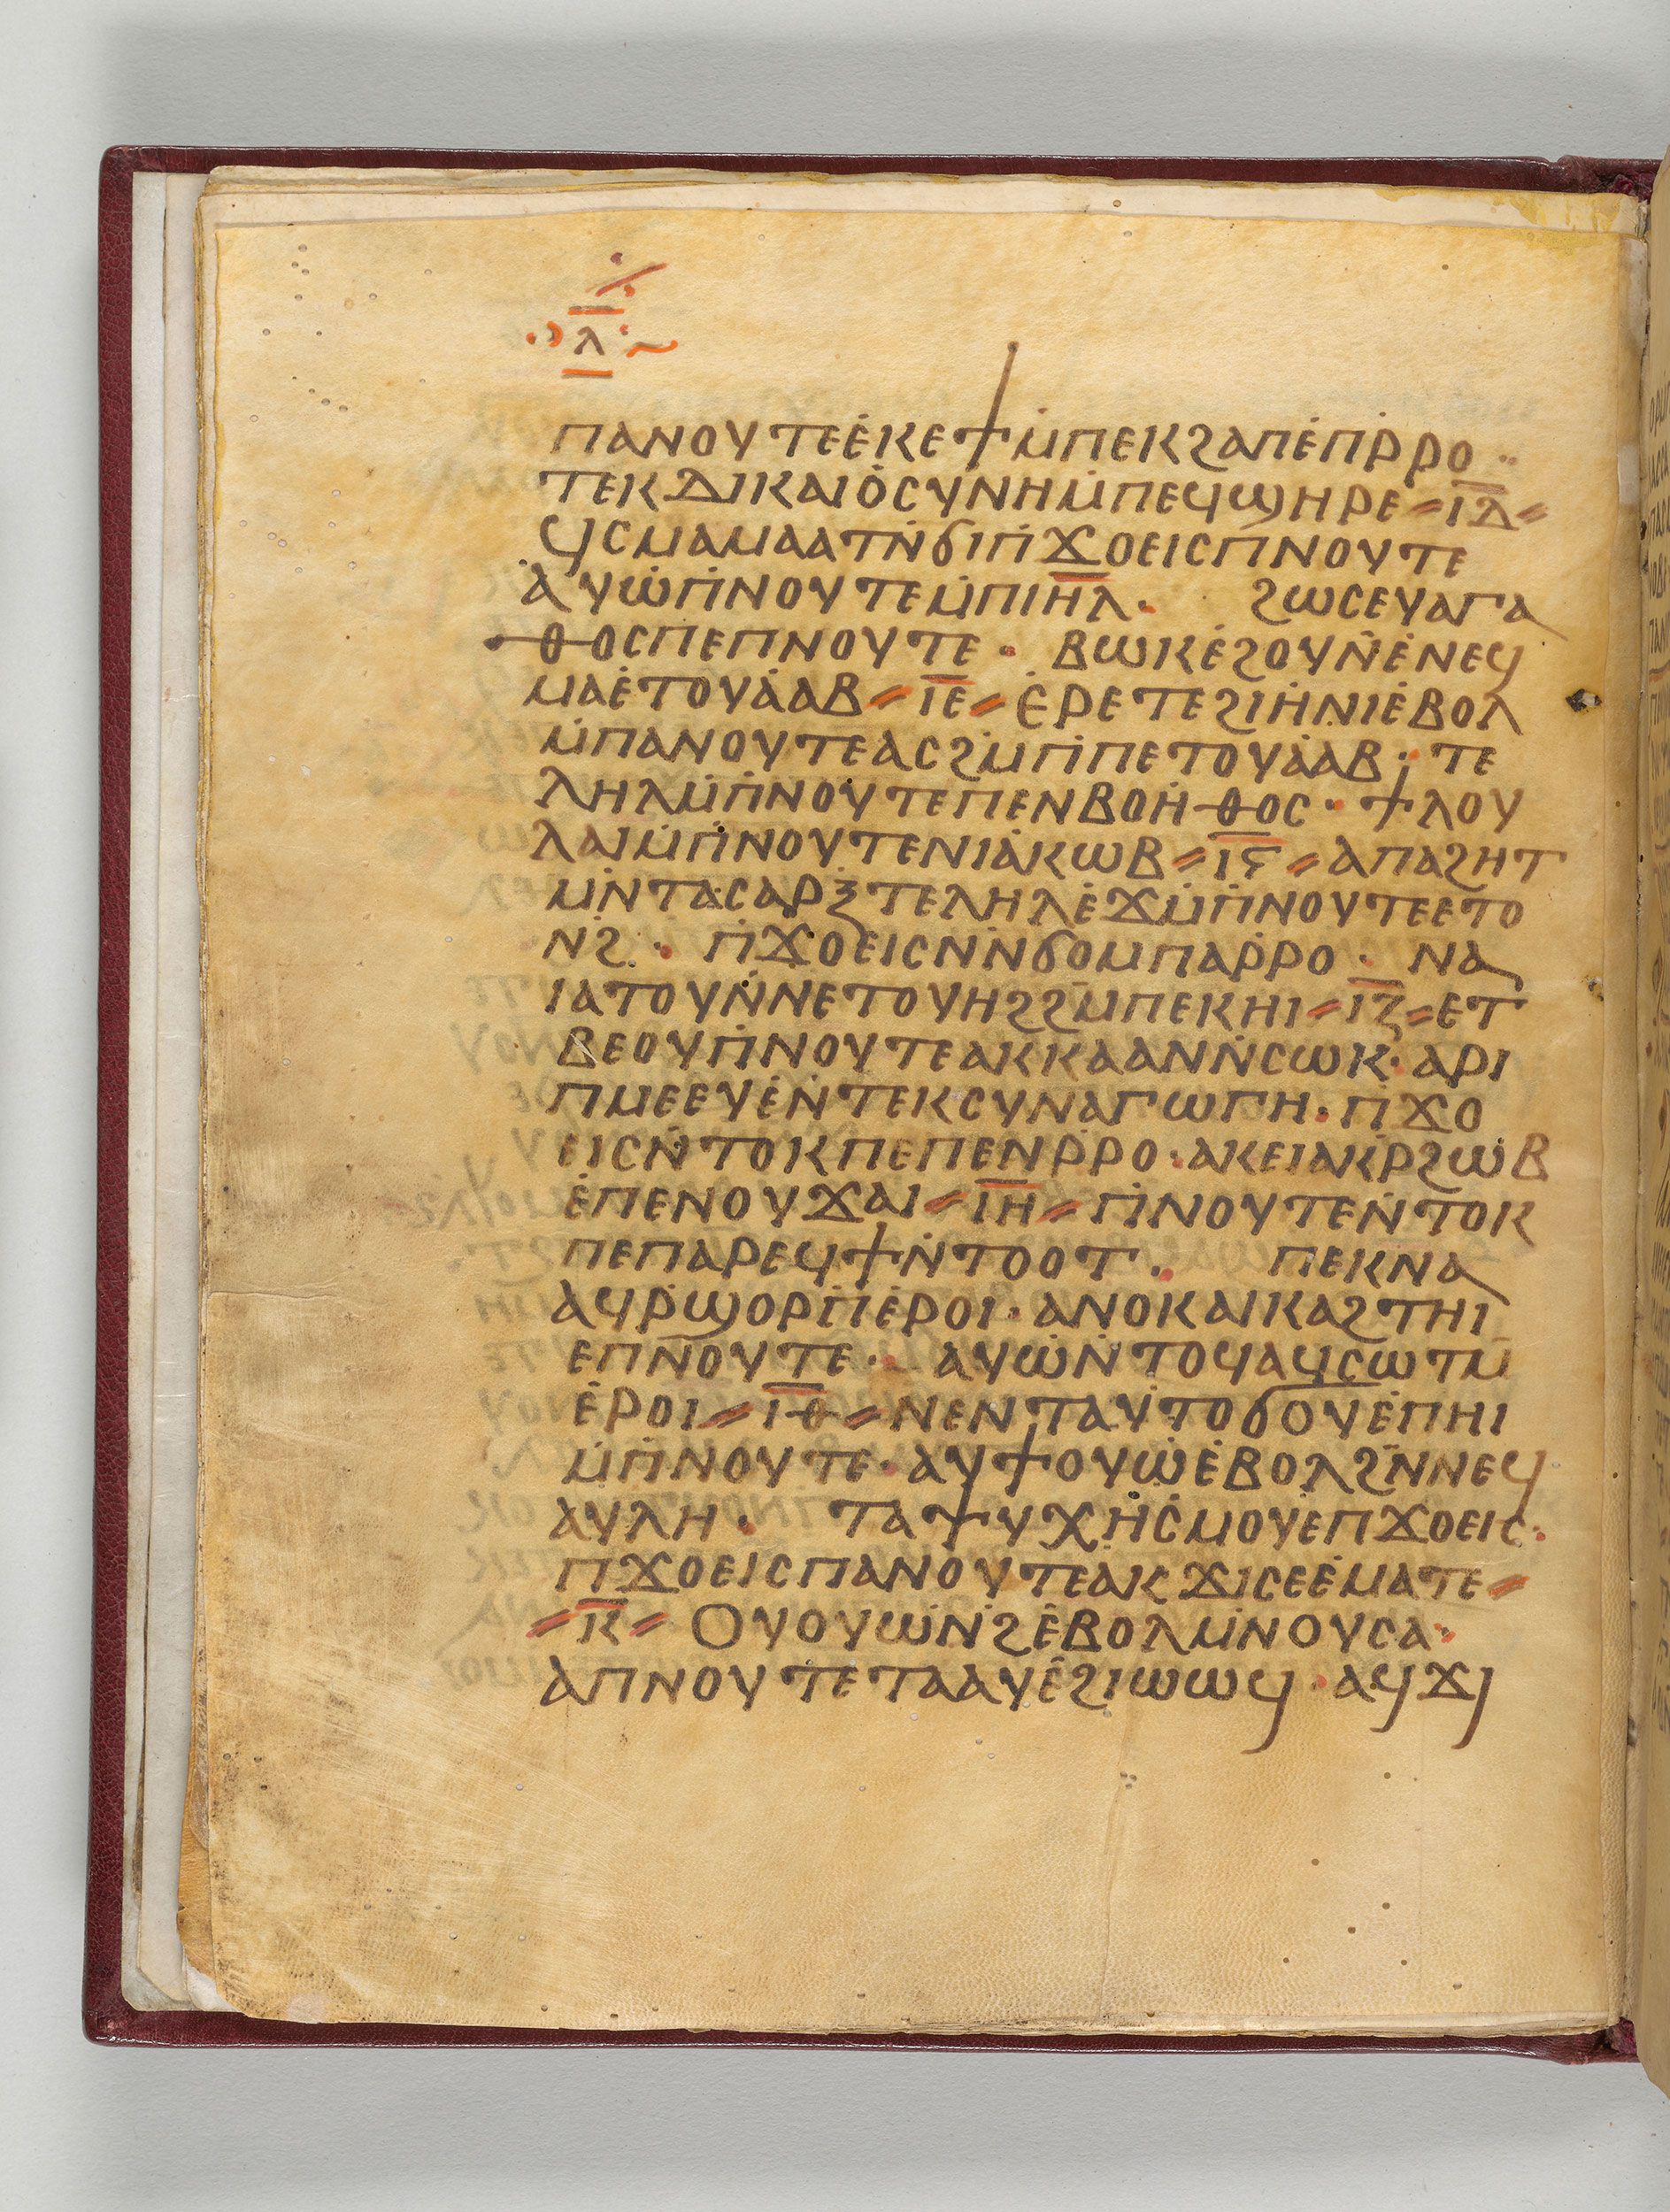 ⲗ
ⲡⲁⲛⲟⲩⲧⲉⲉ̇ⲕⲉϯⲙ̇ⲡⲉⲕϩⲁⲡⲉ̇ⲡⲣ̇ⲣⲟ ··
ⲧⲉⲕⲇⲓⲕⲁⲓⲟ̇ⲥⲩⲛⲏⲙ̇ⲡⲉϥϣⲏⲣⲉ⸗ⲓ̅ⲇ̅⸗
ϥⲥⲙⲁⲙⲁⲁⲧⲛ̇ϭⲓⲡ̇ϫⲟⲉⲓⲥⲡ̇ⲛⲟⲩⲧⲉ
ⲁ̇ⲩⲱ̇ⲡ̇ⲛⲟⲩⲧⲉⲙ̇ⲡⲓⲏ̅ⲗ̅· ϩⲱⲥⲉⲩⲁⲅⲁ
ⲑⲟⲥⲡⲉⲡⲛⲟⲩⲧⲉ· ⲃⲱⲕⲉ̇ϩⲟⲩⲛ̇ⲉ̇ⲛⲉϥ
ⲙⲁⲉ̇ⲧⲟⲩⲁ̇ⲁⲃ⸗ⲓ̅ⲉ̅⸗ⲉ̇ⲣⲉⲧⲉϩⲓⲏ̇ⲛⲓⲉ̇ⲃⲟⲗ
ⲙ̇ⲡⲁⲛⲟⲩⲧⲉⲁⲥϩⲙ̇ⲡ̇ⲡⲉⲧⲟⲩⲁ̇ⲁⲃ· ⲧⲉ
ⲗⲏⲗⲙ̇ⲡ̇ⲛⲟⲩⲧⲉⲡⲉⲛⲃⲟⲏ̇ⲑⲟⲥ· ϯⲗⲟⲩ
ⲗⲁⲓⲙ̇ⲡ̇ⲛⲟⲩⲧⲉⲛⲓⲁ̇ⲕⲱⲃ⸗ⲓ̅ⲋ̅⸗ⲁⲡⲁϩⲏⲧ
ⲙⲛ̇ⲧⲁⲥⲁⲣⲝⲧⲉⲗⲏⲗⲉ̇ϫⲙ̇ⲡ̇ⲛⲟⲩⲧⲉⲉⲧⲟ
ⲛ̇ϩ· ⲡ̇ϫⲟⲉⲓⲥⲛⲛ̇ϭⲟⲙⲡⲁⲣ̇ⲣⲟ· ⲛⲁ
ⲓⲁⲧⲟⲩⲛ̇ⲛⲉⲧⲟⲩⲏϩϩⲙ̅ⲡⲉⲕⲏⲓ⸗ⲓ̅ⲍ̅⸗ⲉⲧ
ⲃⲉⲟⲩⲡ̇ⲛⲟⲩⲧⲉⲁⲕⲕⲁⲁⲛⲛ̇ⲥⲱⲕ· ⲁⲣⲓ
ⲡⲙⲉⲉⲩⲉ̇ⲛ̇ⲧⲉⲕⲥⲩⲛⲁⲅⲱⲅⲏ· ⲡ̇ϫⲟ
ⲉⲓⲥⲛ̇ⲧⲟⲕⲡⲉⲡⲉⲛⲣ̇ⲣⲟ· ⲁⲕⲉⲓⲁⲕⲣ̇ϩⲱ̇ⲃ
ⲉ̇ⲡⲉⲛⲟⲩϫⲁⲓ⸗ⲓ̅ⲏ̅⸗ⲡ̇ⲛⲟⲩⲧⲉⲛ̇ⲧⲟⲕ
ⲡⲉⲡⲁⲣⲉϥϯⲛ̇ⲧⲟⲟⲧ· ⲡⲉⲕⲛⲁ
ⲁϥⲣ̇ϣⲟⲣⲡ̇ⲉ̇ⲣⲟⲓ· ⲁⲛⲟⲕⲁⲓⲕⲁϩⲧⲏⲓ
ⲉⲡⲛⲟⲩⲧⲉ· ⲁⲩⲱ̇ⲛ̇ⲧⲟϥⲁϥⲥⲱⲧⲙ̅
ⲉ̇ⲣⲟⲓ⸗ⲓ̅ⲑ̅⸗ⲛⲉⲛⲧⲁⲩⲧⲟϭⲟⲩⲉ̇ⲡⲏⲓ
ⲙ̇ⲡ̇ⲛⲟⲩⲧⲉ· ⲁⲩϯⲟⲩⲱ̇ⲉ̇ⲃⲟⲗϩⲛ̅ⲛⲉϥ
ⲁⲩⲗⲏ· ⲧⲁⲯⲩⲭⲏ̇ⲥⲙⲟⲩⲉⲡϫⲟⲉⲓⲥ·
ⲡϫⲟⲉⲓⲥⲡⲁⲛⲟⲩⲧⲉⲁⲕϫⲓⲥⲉⲉ̇ⲙⲁⲧⲉ⸗
⸗ⲕ̅⸗ ⲟⲩⲟⲩⲱⲛ̇ϩⲉ̇ⲃⲟⲗⲙⲛ̇ⲟⲩⲥⲁ·
ⲁⲡⲛⲟⲩⲧⲉⲧⲁⲁⲩⲉ̇ϩⲓⲱⲱϥ· ⲁϥϫⲓ